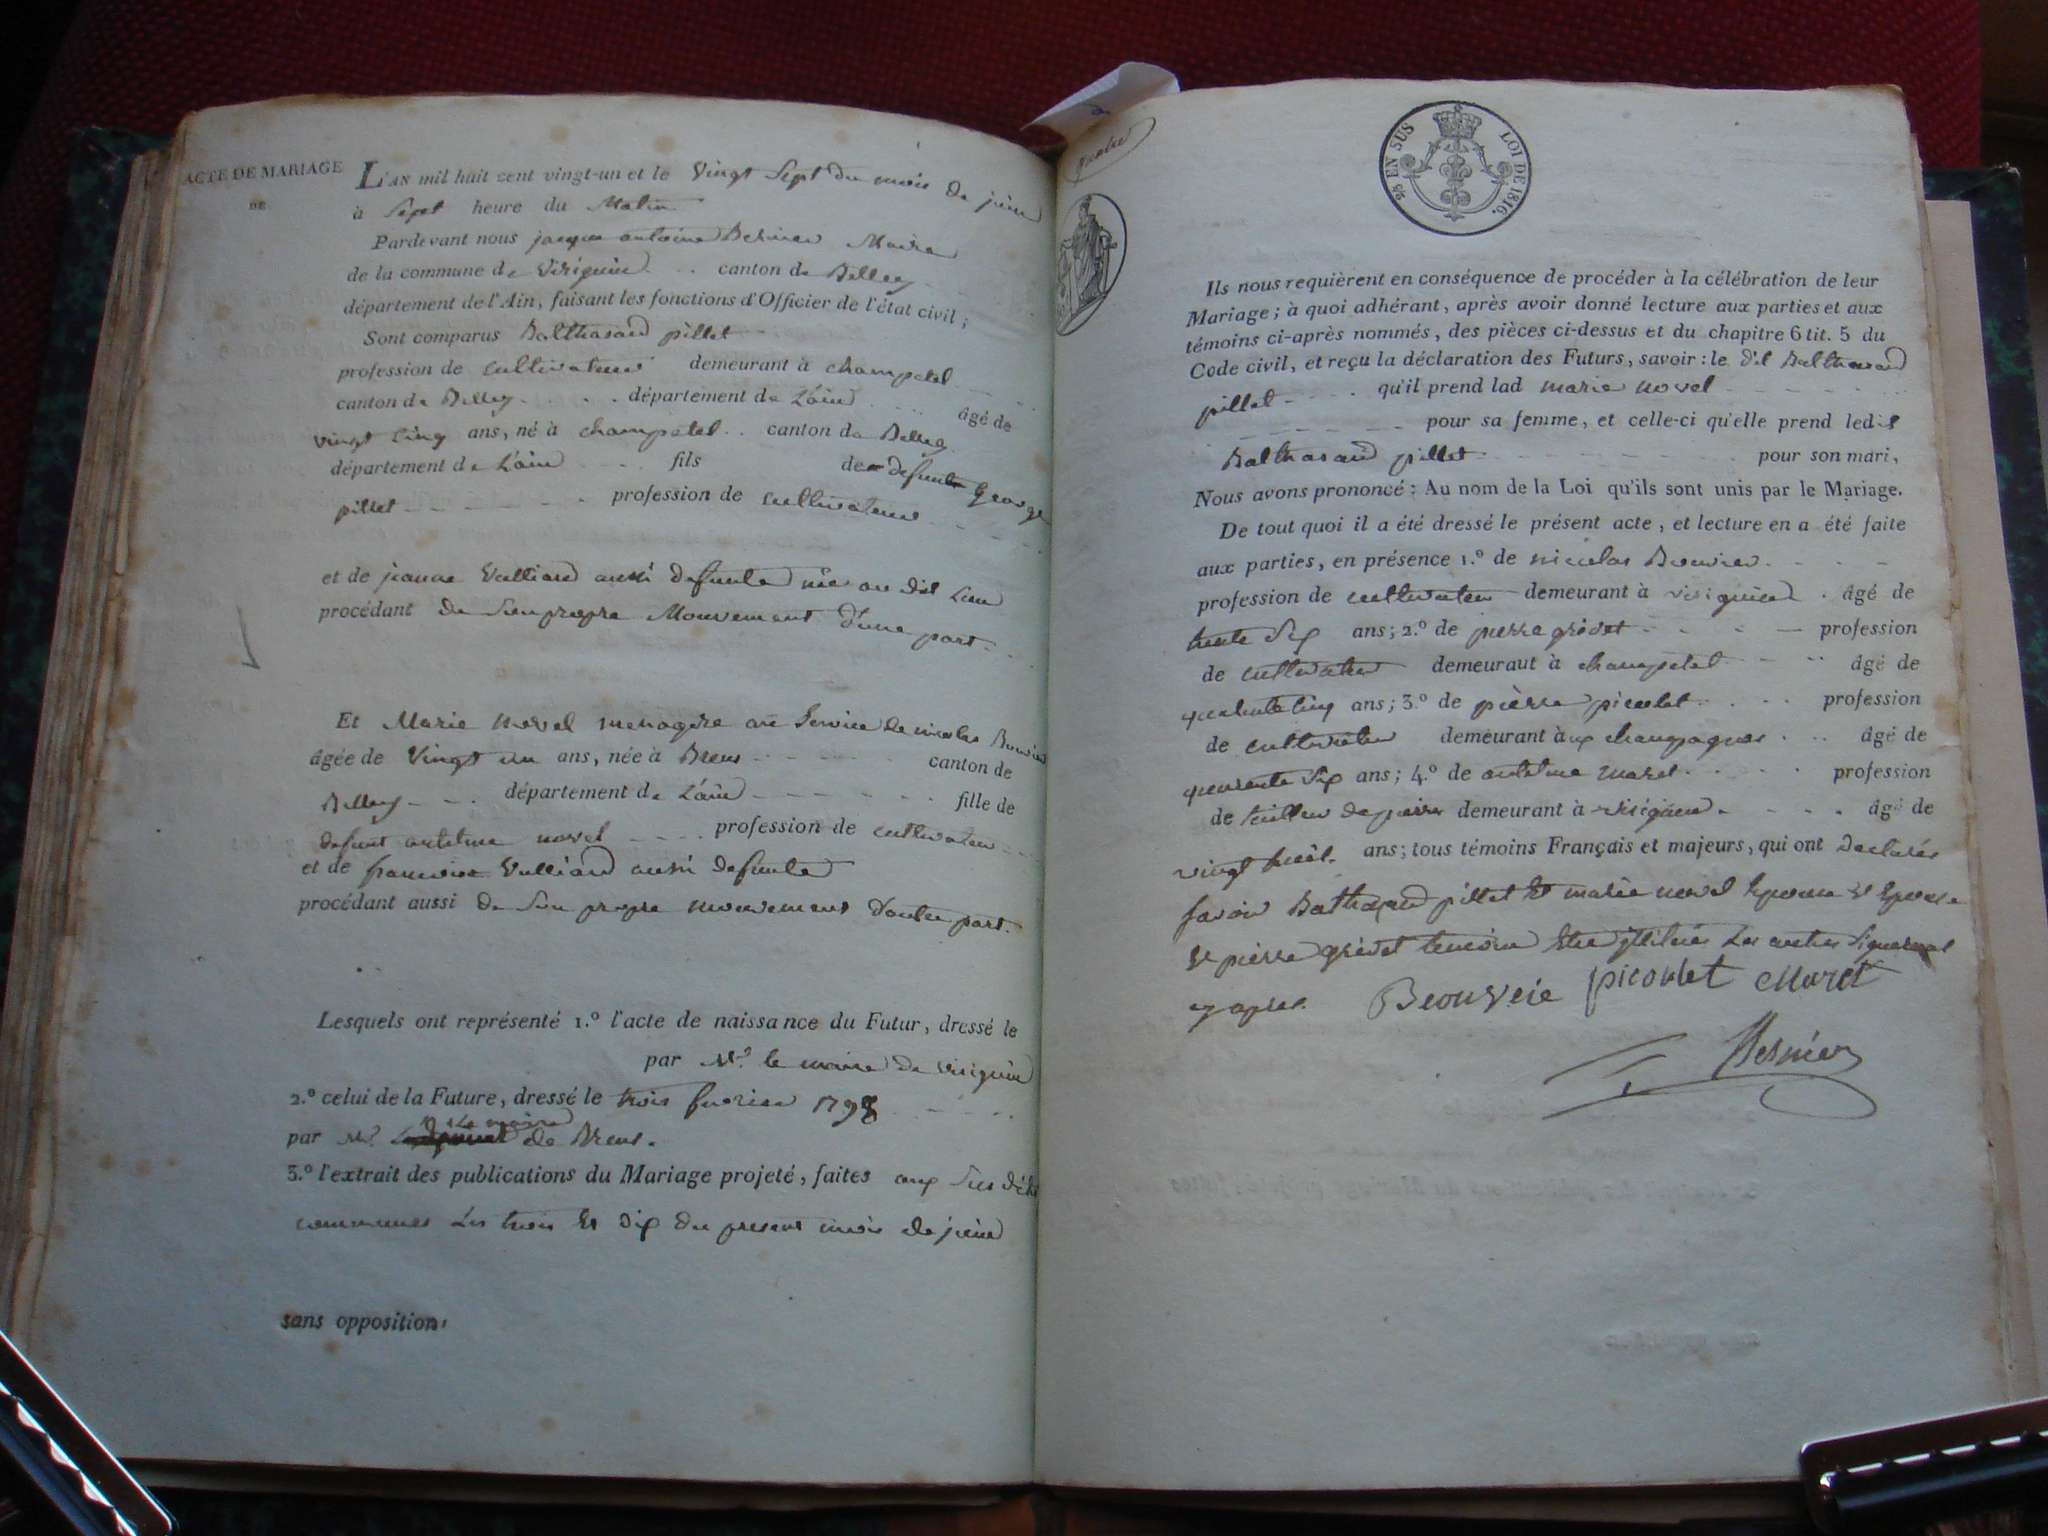 ACTE DE MARIAGE
DE
L'AN mil huit cent vingt-un et le Vingt Sept du mois de juin
à Sept heure du Matin
Pardevant nous jacque antoine Besnier Maire
de la commune de Virignin canton de Belley
département de l'Ain, faisant les fonctions d'Officier de l'état civil;
Sont comparus Balthasard pillet
profession de cultivateur demeurant à champetel
canton de Belley département de L'ain âgé de
vingt Cinq ans, né à champetel canton de Belley
département de L'ain fils de defunt George
pillet profession de cultivateur
et de jeanne Vulliard aussi defunte née au dit Lieu
procédant de Son propre Mouvement d'une part
Et Marie novel menagere au Service de nicolas Bouvier
âgée de Vingt un ans, née à Brens canton de
Belley département de L'ain fille de
defunt antelme novel profession de cultivateur
et de francoise Vulliard aussi defunte
procédant aussi de Son propre mouvement d'autre part.
Lesquels ont représenté 1.º l'acte de naissance du Futur, dressé le
par Mr. le maire de virignin
2.º celui de la Future, dressé le trois fevrier 1798
par Mr. Le maire de Brens.
3.º l'extrait des publications du Mariage projeté, faites aux Sus dites
communes Les trois Et Dix du present mois de juin
sans opposition.
25 EN SUS LOI DE 1816.
Ils nous requièrent en conséquence de procéder à la célébration de leur
Mariage; à quoi adhérant, après avoir donné lecture aux parties et aux
témoins ci-après nommés, des pièces ci-dessus et du chapitre 6 tit. 5 du
Code civil, et reçu la déclaration des Futurs, savoir: le dit Balthasard
pillet qu'il prend lad marie novel
pour sa femme, et celle-ci qu'elle prend ledit
Balthasard pillet pour son mari,
Nous avons prononcé: Au nom de la Loi qu'ils sont unis par le Mariage.
De tout quoi il a été dressé le présent acte, et lecture en a été faite
aux parties, en présence 1.º de nicolas Bouvier
profession de cultivateur demeurant à virignin âgé de
trente Six ans; 2.º de pierre grivet profession
de cultivateur demeurant à champetel âgé de
quarante cinq ans; 3.º de pièrre picolet profession
de cultivateur demeurant àux champagnes âgé de
quarante Six ans; 4.º de antelme maret profession
de tailleur de pierre demeurant à virignin âgé de
vingt huit ans; tous témoins Français et majeurs, qui ont Declarés
savoir Balthasard pillet Et marie novel Epoux Et Epouse
Et pierre grivet temoin Etre illiterés Les autres Signeront
cy apres. Beouveie picollet Maret
Besnier